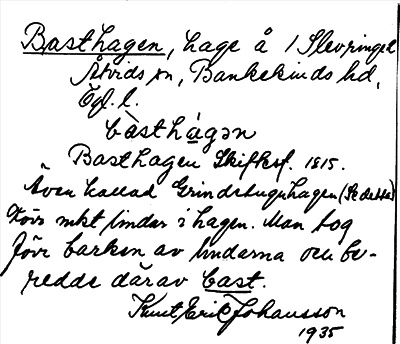 Basthagen, hage å 1 Slevringe
Åtvids sn, Bankekinds hd,
Ögl. l.
bàsthágən
Basthagen Skiftesf. 1815.
Även kallad Grindstuguhagen (Se dessa)
Förr mkt lindar i hagen. Man tog
förr barken av lindarna och be-
redde därav bast.
Knut Eric Johansson
1935